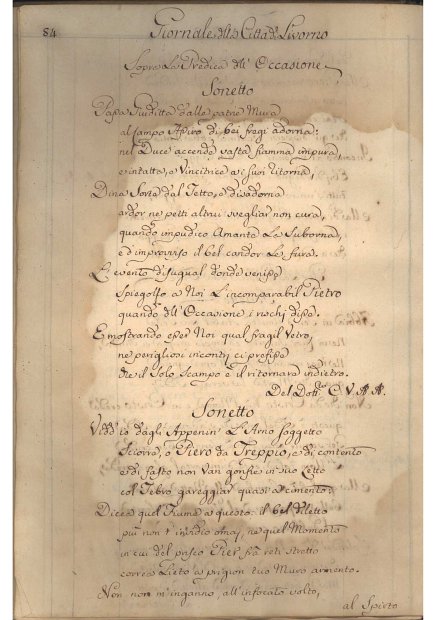 84
Giornale della Città di Livorno
Sopra La Predica dell' Occasione
Sonetto
Passa Giuditta dalle patrie Mura
al Campo Assiro di bei fregi adorna:
nel Duce accende vasta fiamma impura,
e intatta, e Vincitrice a i suoi ritorna,
Dina Sorte dal Tetto, e disadorna
ardor ne petti altrui svegliar non cura,
quando impudico Amante La Suborna,
e d'improvviso il bel candor Le fura.
L'evento disugual donde venisse
Spiegollo a Noi L'incomparabil Pietro
quando dell' Occasione i rischj disse.
E mostrando esser Noi qual fragil Vetro
ne perigliosi incontri ci prefisse
che il Solo Scampo è il ritornare indietro.
Del Dott. C. V. A. A.
Sonetto
Vidd' io dagli Appenin' L'Arno soggetto
Sciorre, o Piero da Treppio, e di contento
e di fasto non van gonfie in suo Letto
col Tebro gareggiar quasi a cimento:
Dicea quel Fiume a questo: il bel diletto
più non t' invidio omai, ne quel Momento
in cui del prisco Pier fra reti stretto
correa Lieto a prigion tuo Muto armento.
Non non m'inganno, all' infocato volto,
al Spirto